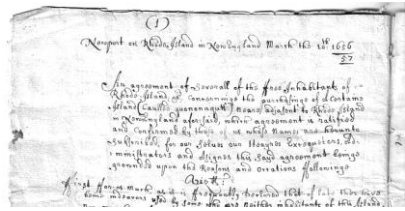 (1)
Newport on Rhode Island in New England March the 10th 1656
57
An agreement of Severall of the free Inhabitants of
Rhode Island &c Concerninge the purchasinge of a Certaine
Island Caulled quononaqutt neare adjacent to Rhode Island
in New England aforesaid, which agreement is ratified
and Confirmed by those of us whose Names are hereunto
Subscribed, for our Selves our Heayres Executors, Ad-
ministrators and assignes this sayd agreement beinge
grownded upon the Reasons and following
first for as much as it is frequently declared that of late there have
some indeavors used by some who are neither inhabitants of this Island,
2